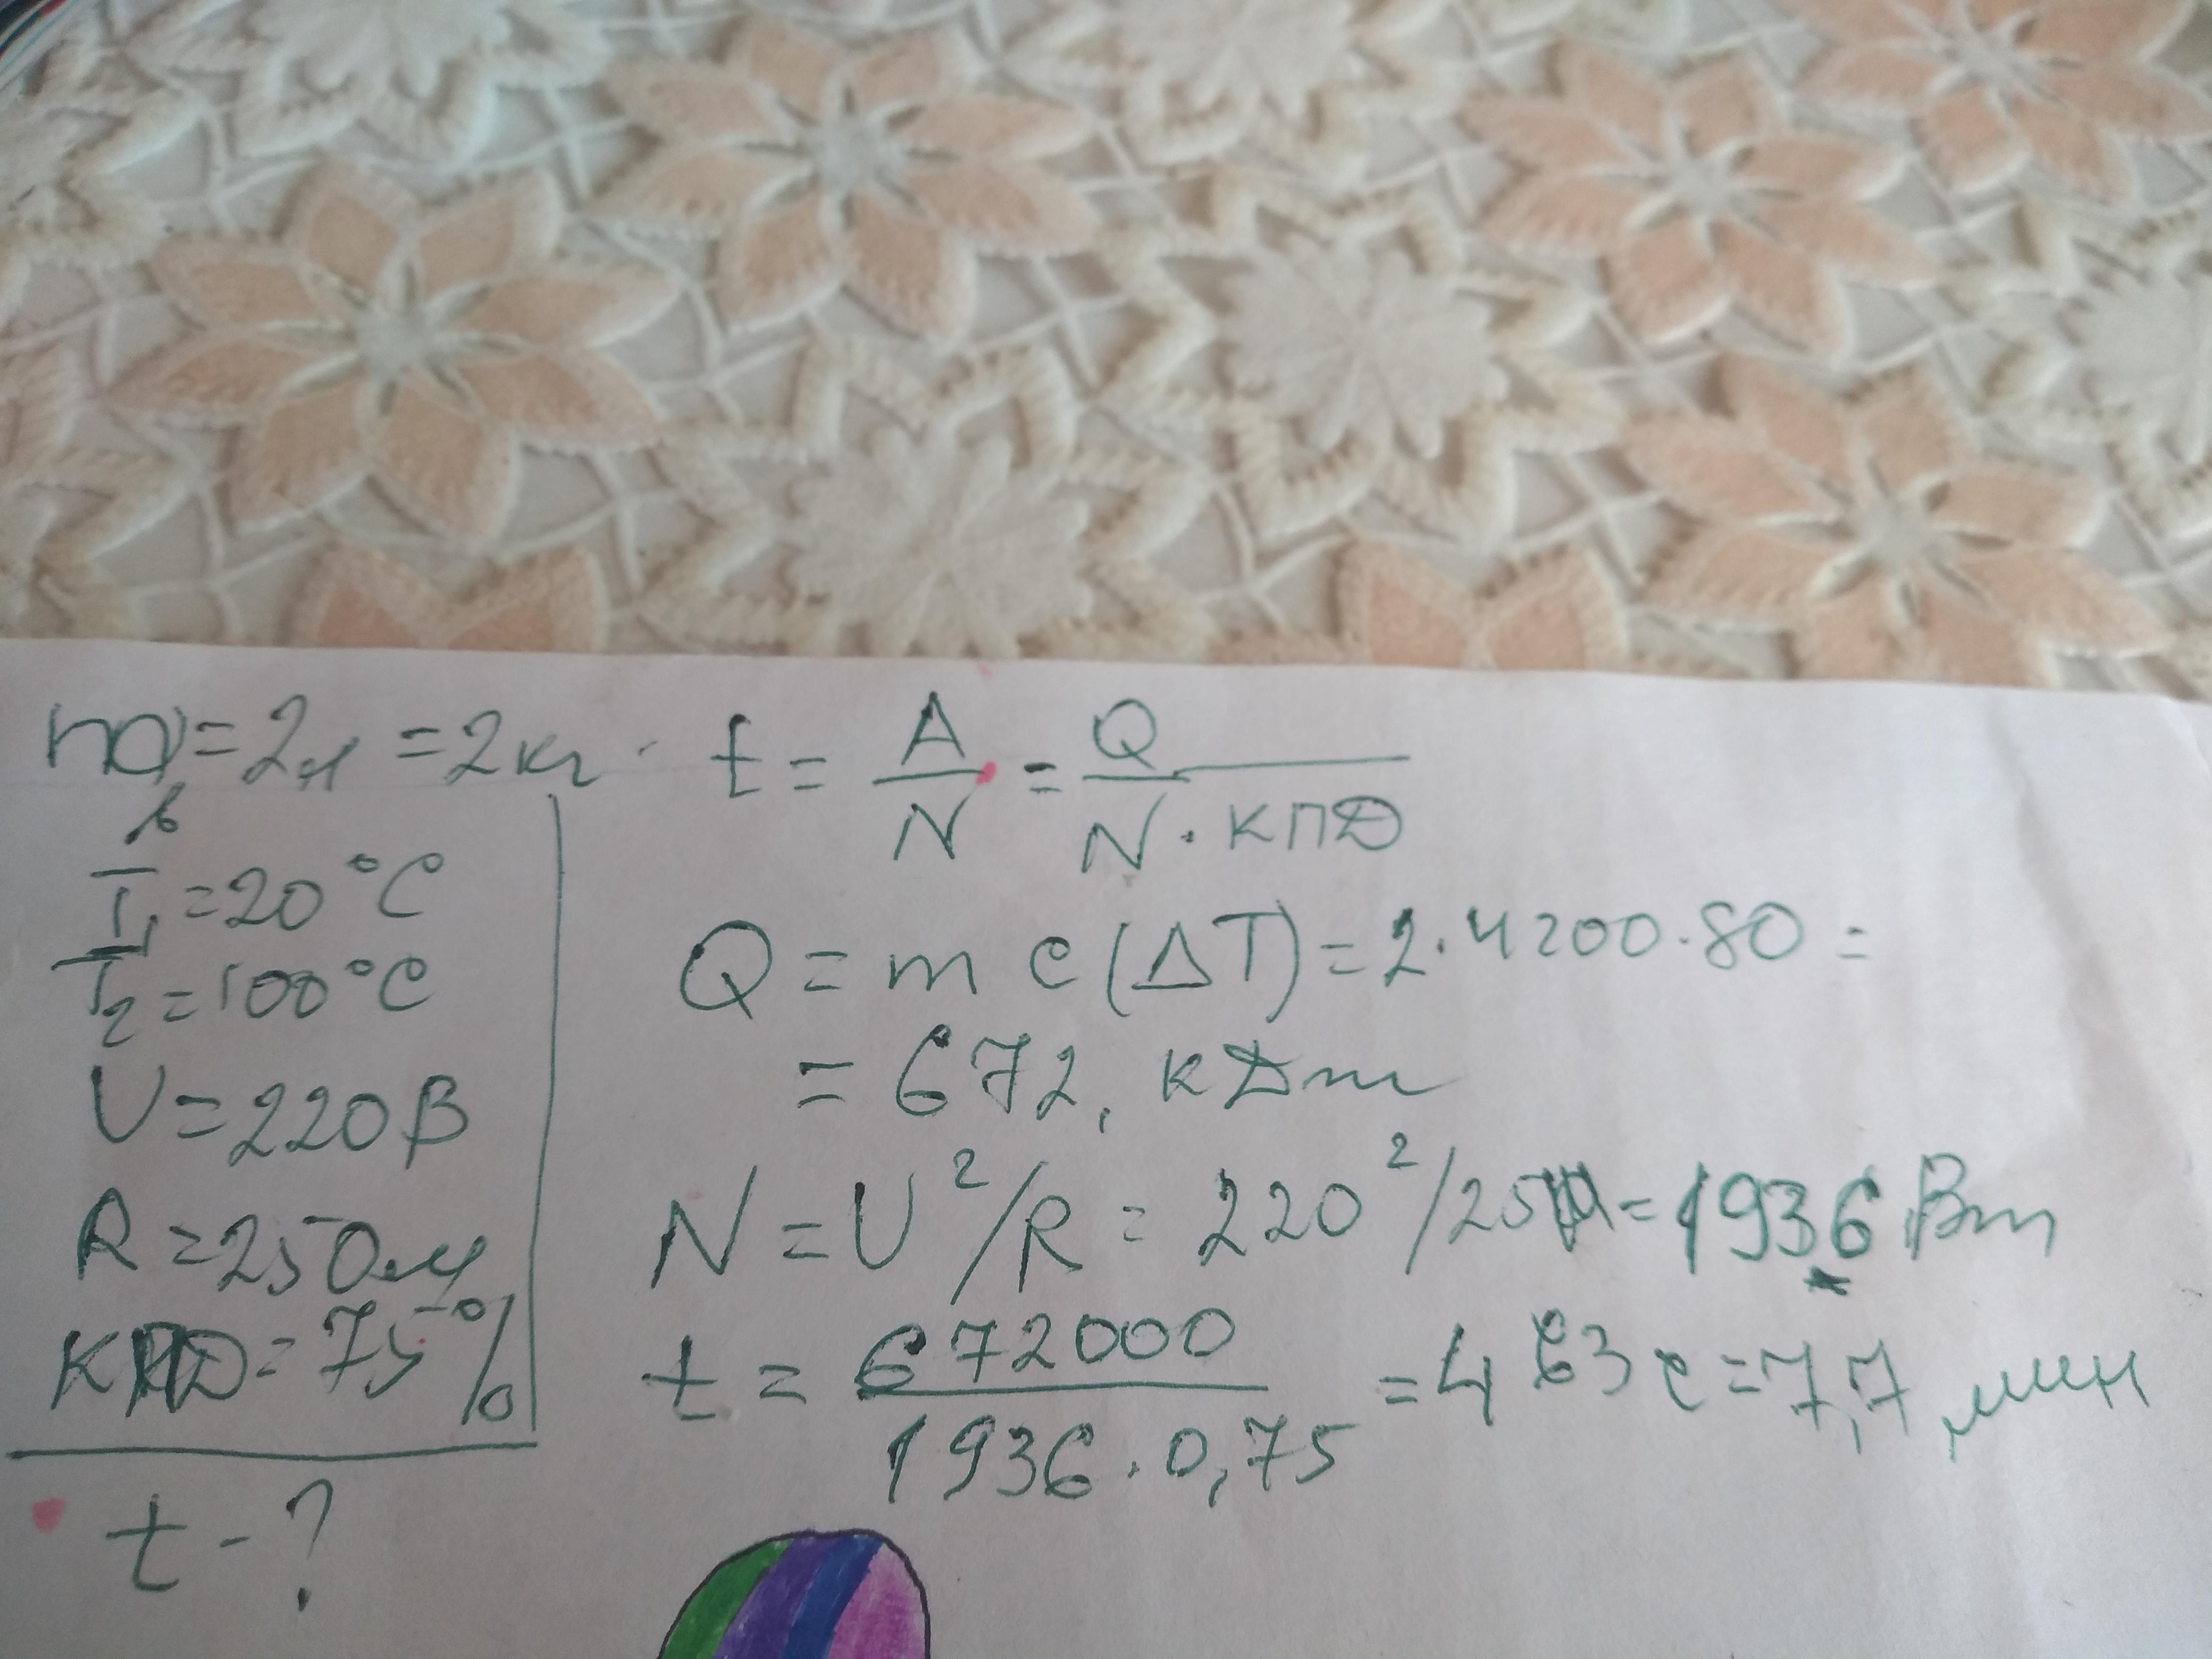 m = 2л = 2кг
в
T₁ = 20°C
T₂ = 100°C
U = 220В
R = 25 Ом
КПД = 75%
t - ?
t = A/N = Q/(N · КПД)
Q = m c (ΔT) = 2 · 4200 · 80 =
= 672, кДж
N = U²/R = 220²/25 = 1936 Вт
t = 672000/(1936 · 0,75) = 463 с = 7,7 мин